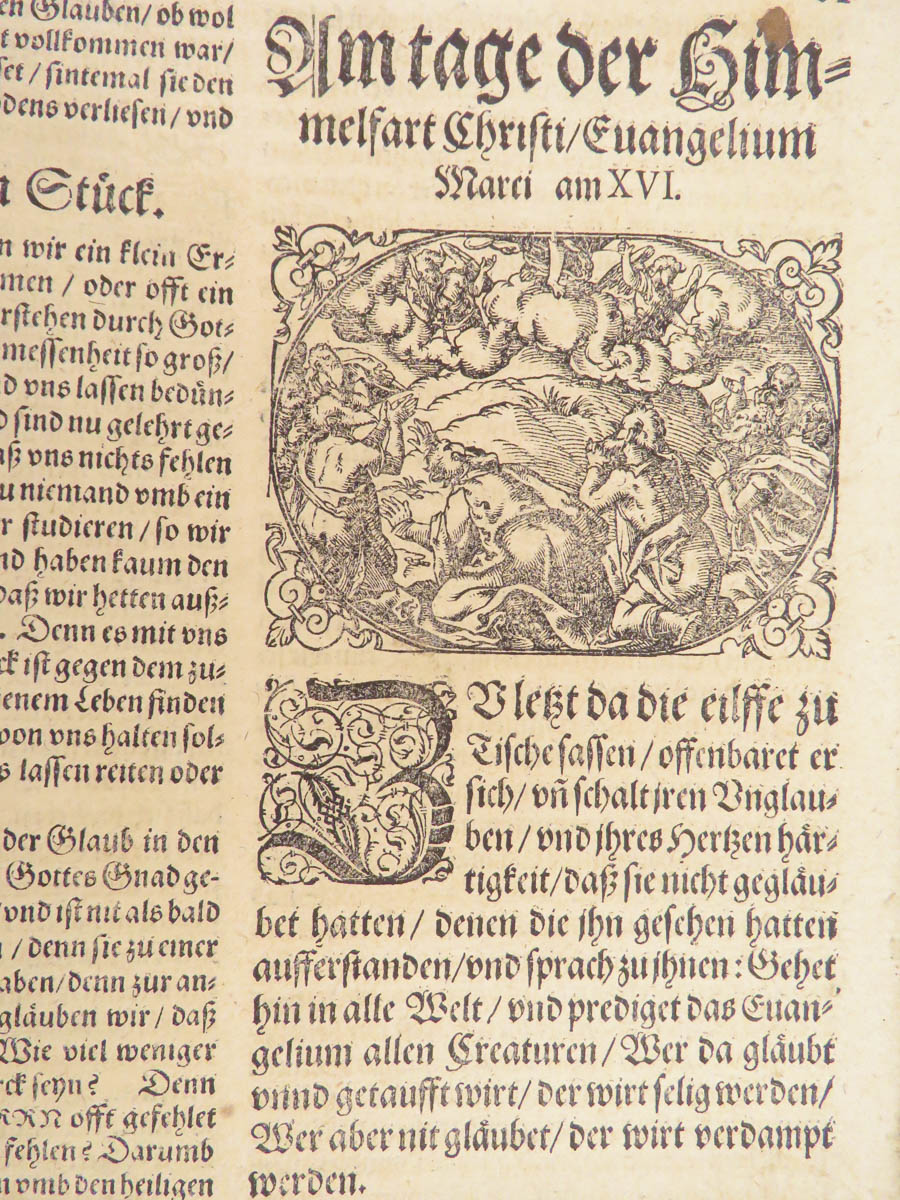 en Glauben/ ob wol
t vollkommen war/
set / sintemal sie den
dens verliesen/ vnd
n Stück.
n wir ein klein Er⸗
men / oder offt ein
rstehen durch Got⸗
messenheit so groß/
d vns lassen bedün⸗
d sind nu gelehrt ge⸗
aß vns nichts fehlen
u niemand vmb ein
r studieren / so wir
nd haben kaum den
daß wir hetten auß⸗
. Denn es mit vns
rck ist gegen dem zu⸗
enem Leben finden
von vns halten sol⸗
s lassen reiten oder
der Glaub in den
Gottes Gnad ge⸗
/vnd ist nit als bald
/ denn sie zu einer
aben/denn zur an⸗
gläuben wir / daß
Wie viel weniger
rck seyn? Denn
RRN offt gefehlet
fehlen? Darumb
n vmb den heiligen
Am tage der Him⸗
melfart Christi/Euangelium
Marci am XVI.
ZV letzt da die eilffe zu
Tische sassen / offenbaret er
sich/ vñ schalt jren Vnglau⸗
ben / vnd jhres Hertzen här⸗
tigkeit/daß sie nicht gegläu⸗
bet hatten / denen die jhn gesehen hatten
aufferstanden/vnd sprach zu jhnen: Gehet
hin in alle Welt / vnd prediget das Euan⸗
gelium allen Creaturen / Wer da gläubt
vnnd getaufft wirt / der wirt selig werden/
Wer aber nit gläubet/ der wirt verdampt
werden.